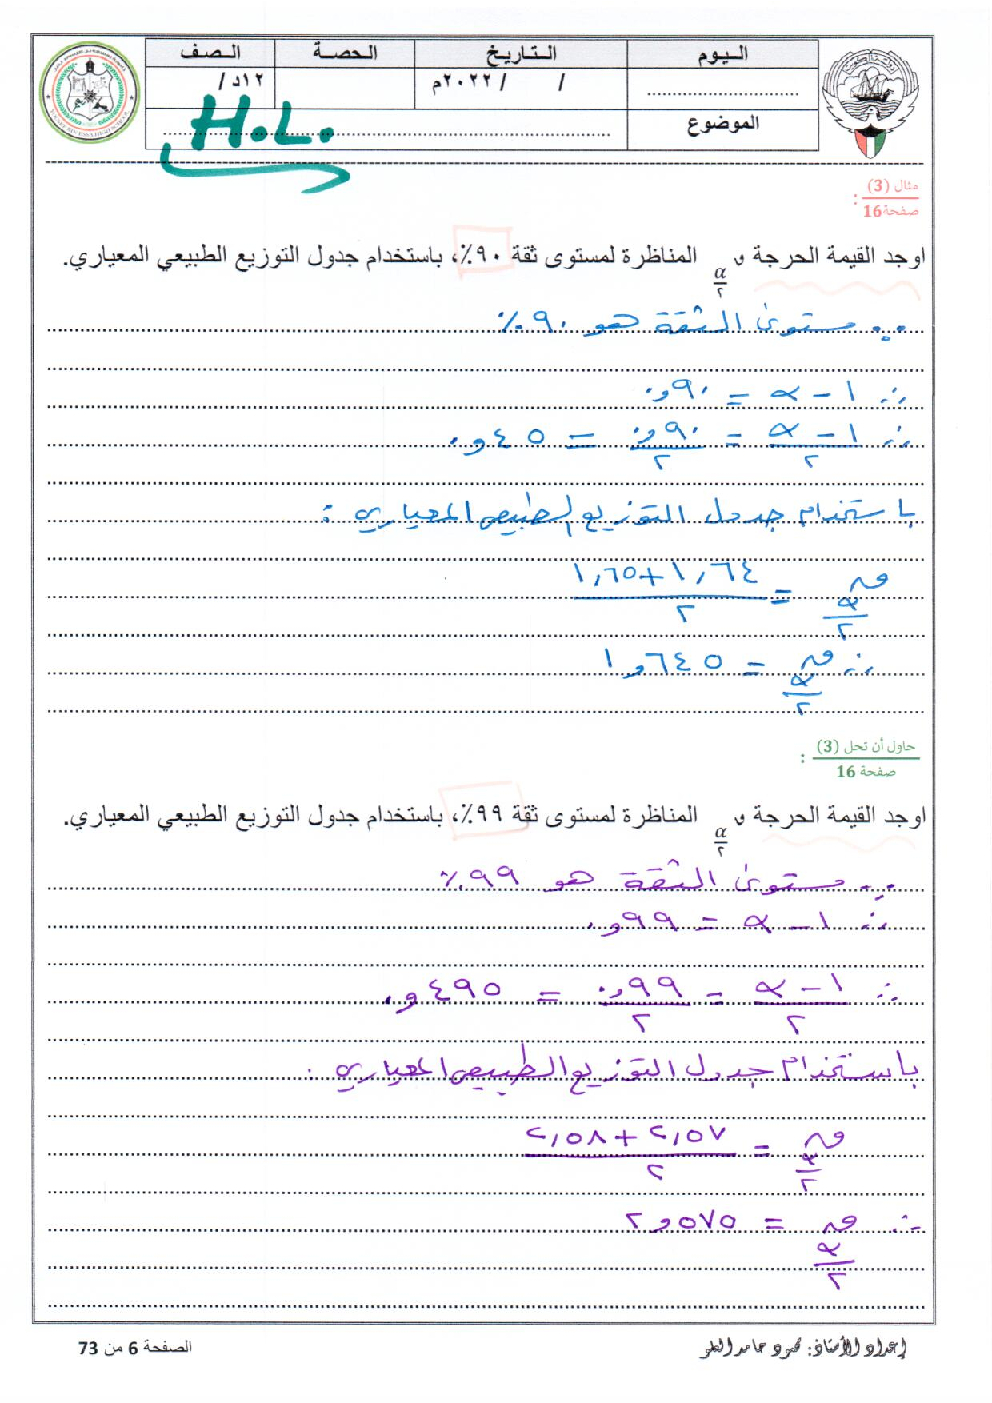 اليوم التاريخ الحصة الصف
..................... / / ٢٠٢٢م ١٢د /
الموضوع ..................... H.L.
مثال (3)
صفحة16 :
اوجد القيمة الحرجة ق α/٢ المناظرة لمستوى ثقة ٩٠٪، باستخدام جدول التوزيع الطبيعي المعياري.
∵ مستوى الثقة هو ٩٠٪
∴ ١ - α = ٠,٩٠
∴ (١ - α)/٢ = ٠,٩٠/٢ = ٠,٤٥
باستخدام جدول التوزيع الطبيعي المعياري :
ق α/٢ = (١,٦٤ + ١,٦٥)/٢
∴ ق α/٢ = ١,٦٤٥
حاول أن تحل (3)
صفحة 16 :
اوجد القيمة الحرجة ق α/٢ المناظرة لمستوى ثقة ٩٩٪، باستخدام جدول التوزيع الطبيعي المعياري.
∵ مستوى الثقة هو ٩٩٪
∴ ١ - α = ٠,٩٩
∴ (١ - α)/٢ = ٠,٩٩/٢ = ٠,٤٩٥
باستخدام جدول التوزيع الطبيعي المعياري :
ق α/٢ = (٢,٥٧ + ٢,٥٨)/٢
∴ ق α/٢ = ٢,٥٧٥
إعداد الأستاذ: محمود حامد
الصفحة 6 من 73